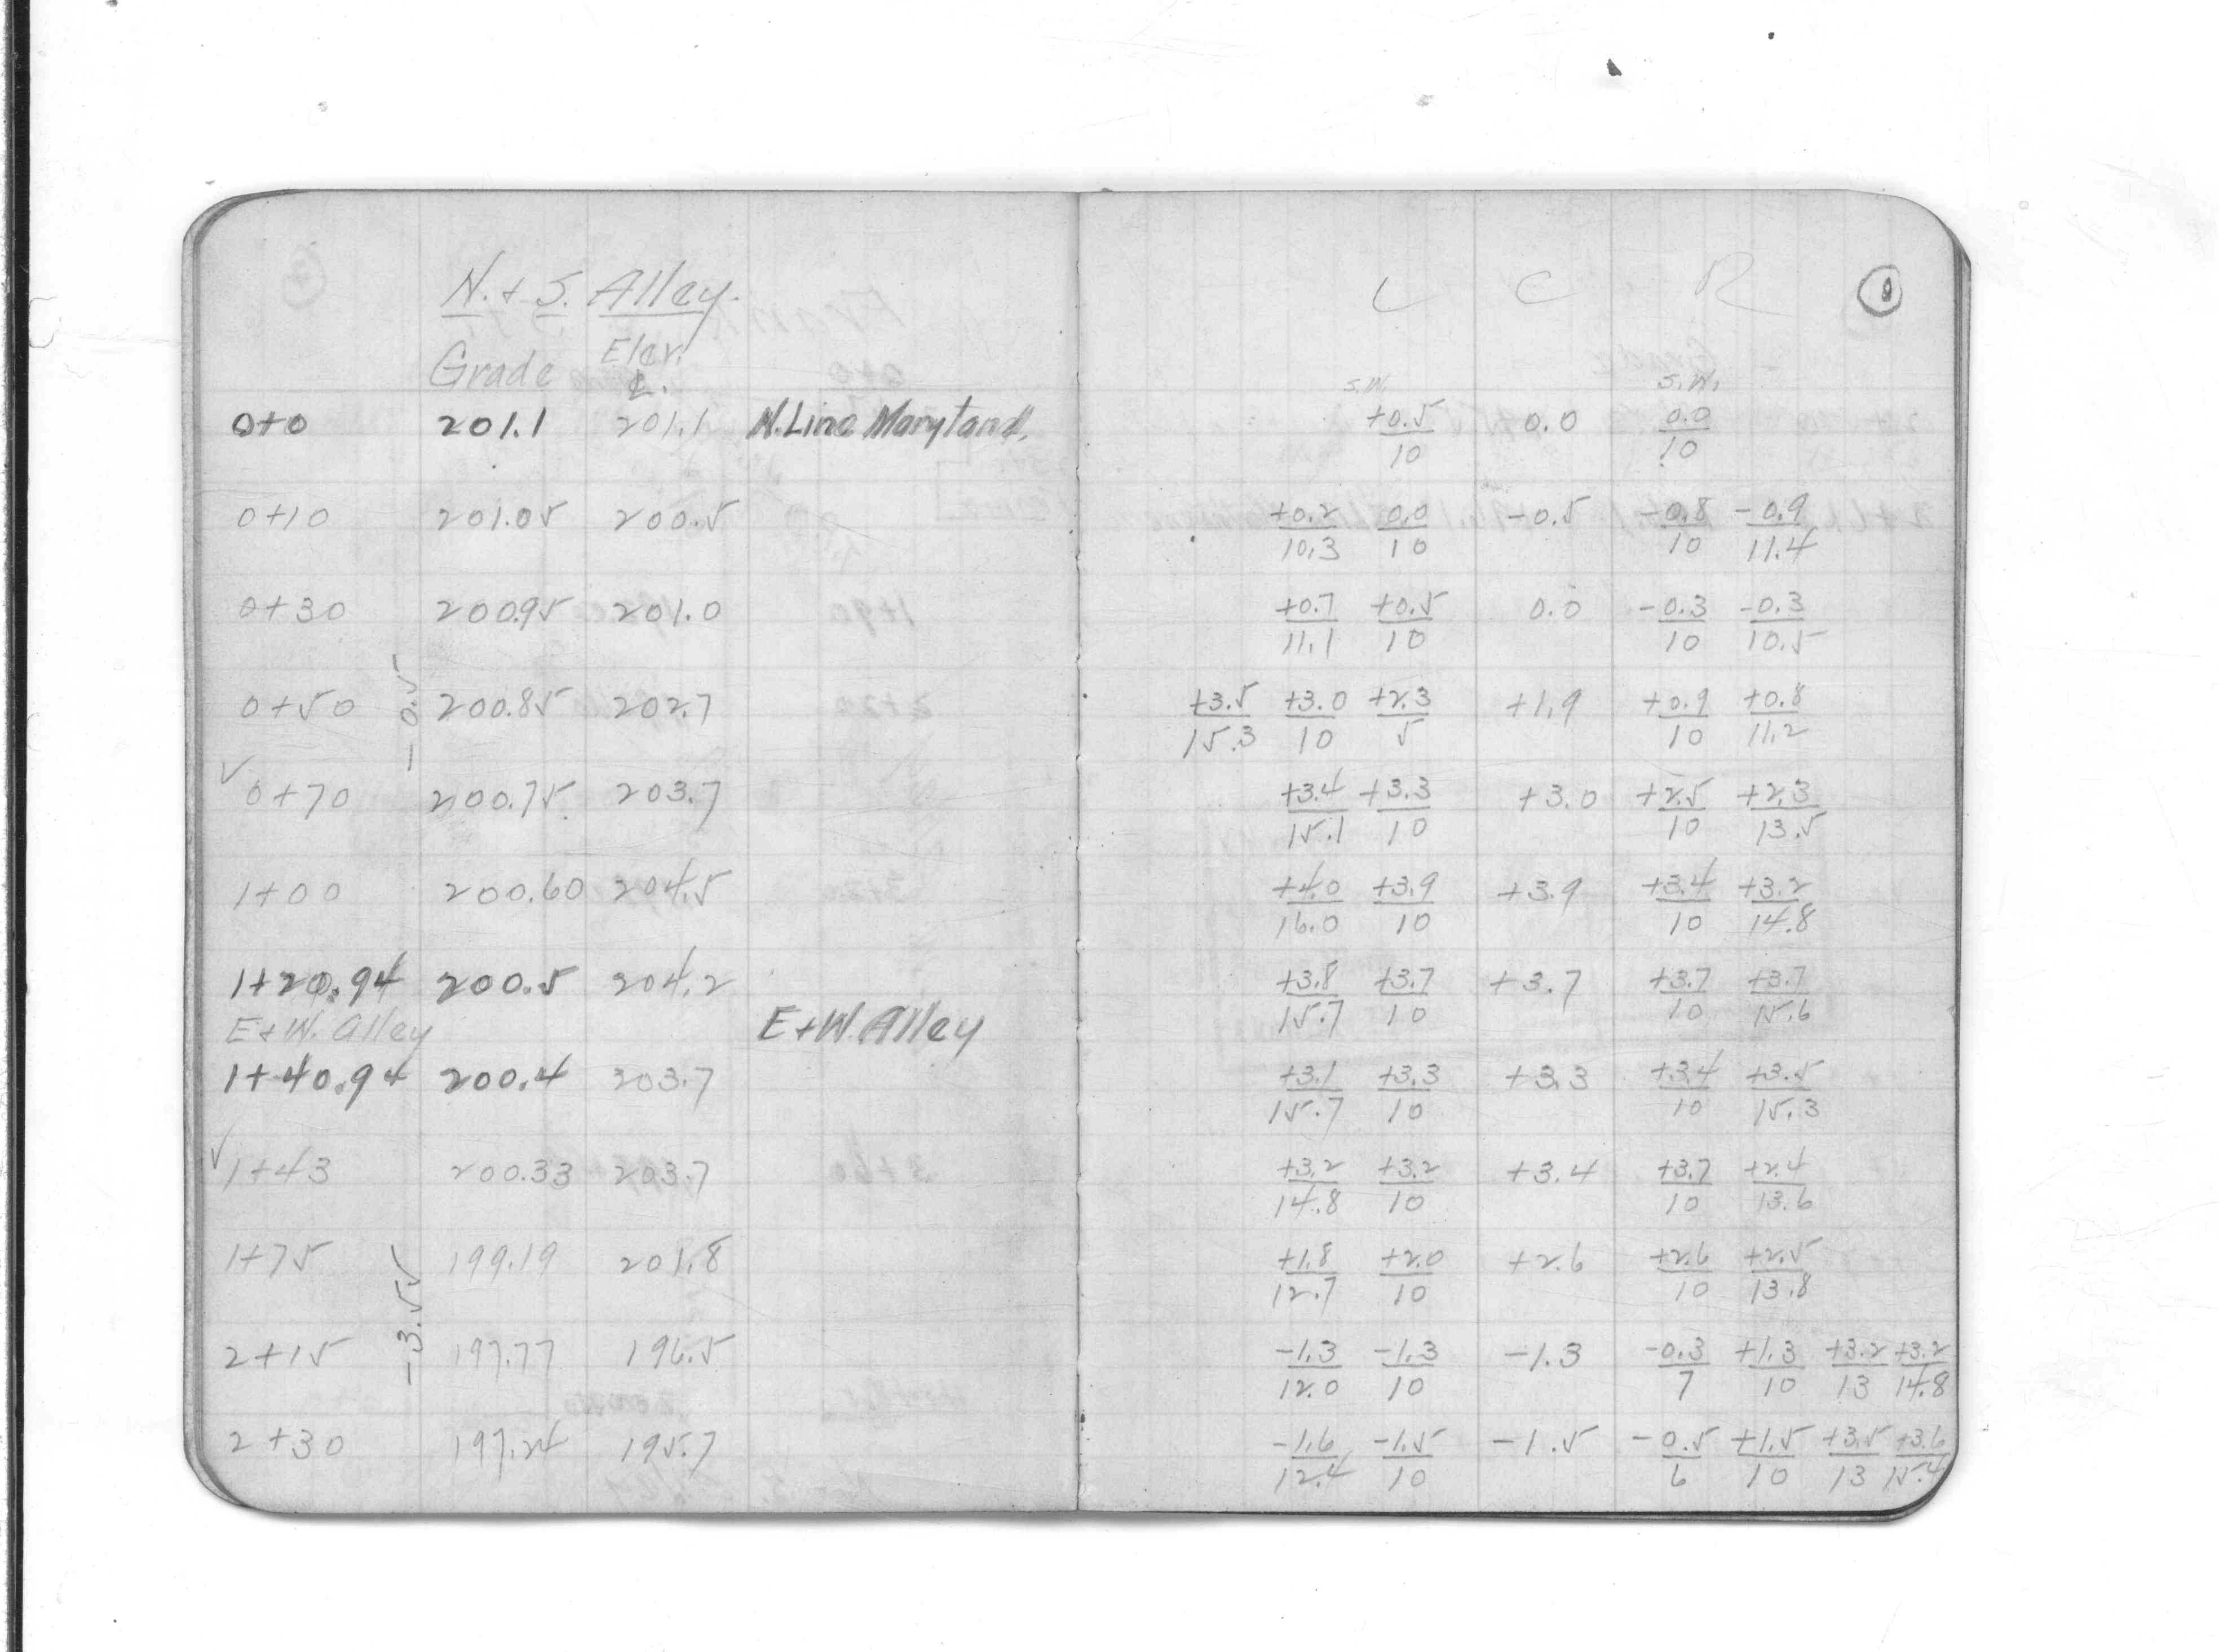 N. + S. Alley.
Grade Elev. ℄.
0+0 201.1 201.1 N. Line Maryland.
0+10 201.05 200.5
0+30 200.95 201.0
-0.5
0+50 200.85 202.7
✓ 0+70 200.75 203.7
1+00 200.60 204.5
1+20.94 200.5 204.2
E+W. Alley E+W. Alley
1+40.94 200.4 203.7
✓ 1+43 200.33 203.7
1+75 199.19 201.8
-3.55
2+15 197.77 196.5
2+30 197.24 195.7
L C R 1
S.W. S.W.
+0.5/10 0.0 0.0/10
+0.2/10.3 0.0/10 -0.5 -0.8/10 -0.9/11.4
+0.7/11.1 +0.5/10 0.0 -0.3/10 -0.3/10.5
+3.5/15.3 +3.0/10 +2.3/5 +1.9 +0.9/10 +0.8/11.2
+3.4/15.1 +3.3/10 +3.0 +2.5/10 +2.3/13.5
+4.0/16.0 +3.9/10 +3.9 +3.4/10 +3.2/14.8
+3.8/15.7 +3.7/10 +3.7 +3.7/10 +3.7/15.6
+3.1/15.7 +3.3/10 +3.3 +3.4/10 +3.5/15.3
+3.2/14.8 +3.2/10 +3.4 +3.7/10 +2.4/13.6
+1.8/12.7 +2.0/10 +2.6 +2.6/10 +2.5/13.8
-1.3/12.0 -1.3/10 -1.3 -0.3/7 +1.3/10 +3.2/13 +3.2/14.8
-1.6/12.4 -1.5/10 -1.5 -0.5/6 +1.5/10 +3.5/13 +3.6/15.4